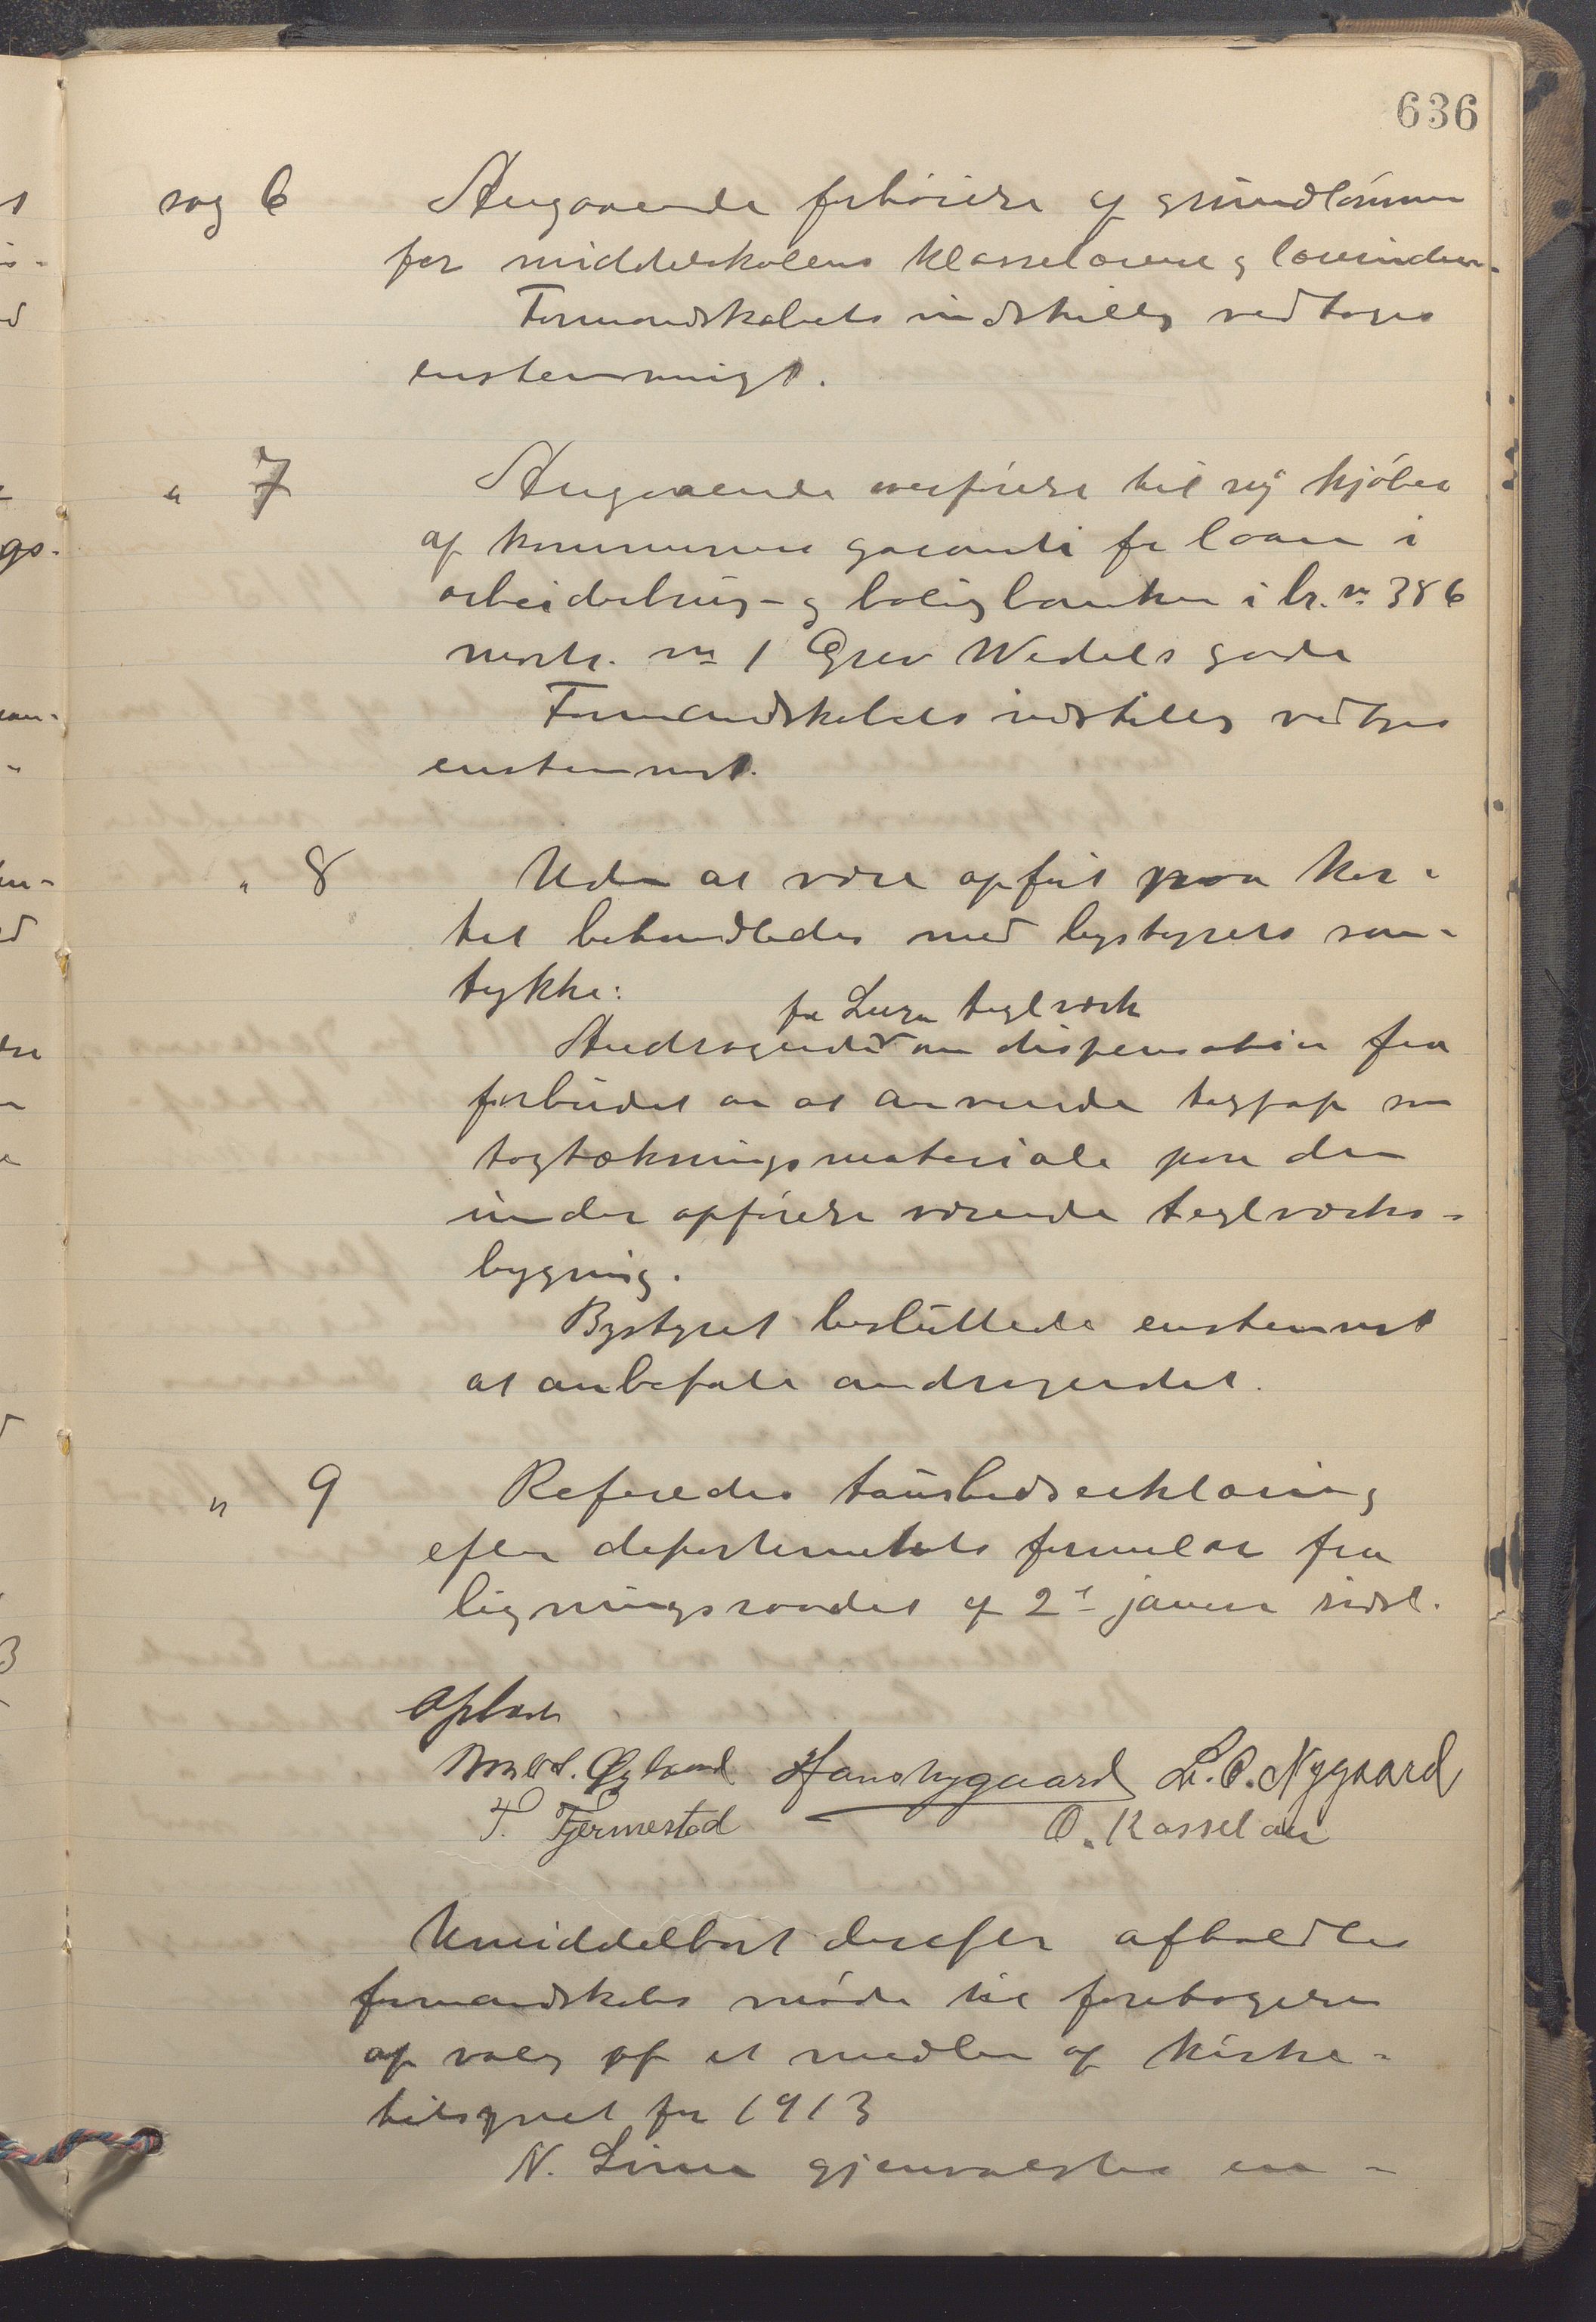 636
sag 6 Angaaende forhøielse af grundlønnen
for middelskolens klasselærere og lærerinder.
Formandskabets indstilling vedtoges
enstemmigt.
" 7 Angaaende overførelse til ny kjøber
af kommunens garanti for laan i
arbeiderbrug- og boligbanken i br. nr 386
matr. nr 1 Grev Wedels gade
Formandskabets indstilling vedtoges
enstemmigt.
" 8 Uden at være opført paa kar-
tet behandledes med bystyrets sam-
tykke:
fra Lura teglværk
Andragende om dispensation fra
forbudet om at anvende tagpap som
tagtækningsmateriale paa den
under opførelse værende teglværks-
bygning.
Bystyret besluttede enstemmigt
at anbefale andragendet.
" 9 Refereredes taushedserklæring
efter departementets formular fra
ligningsraadet af 2den januar sidstl.
Oplæst
Øgland Hans Nygaard L. O. Nygaard
T. Tjermestad O. Kasselau
Umiddelbart derefter afholdtes
formandskabs møde til foretagelse
af valg af et medlem af kirke-
tilsynet for 1913
N. Lima gjenvalgtes en-